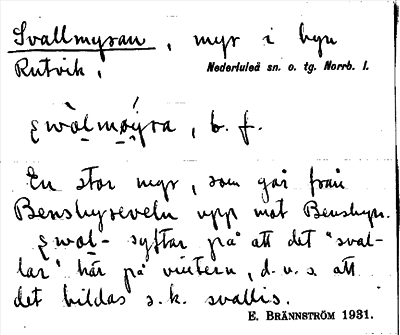 Svallmyran, myr i byn
Rutvik, Nederluleå sn. o. tg. Norrb. l.
ʒwòlmøýra, b. f.
En stor myr, som går från
Bensbyseveln upp mot Bensbyn.
ʒwol- syftar på att det "sval-
lar" här på vintern, d.v.s. att
det bildas s.k. svallis.
E. BRÄNNSTRÖM 1931.